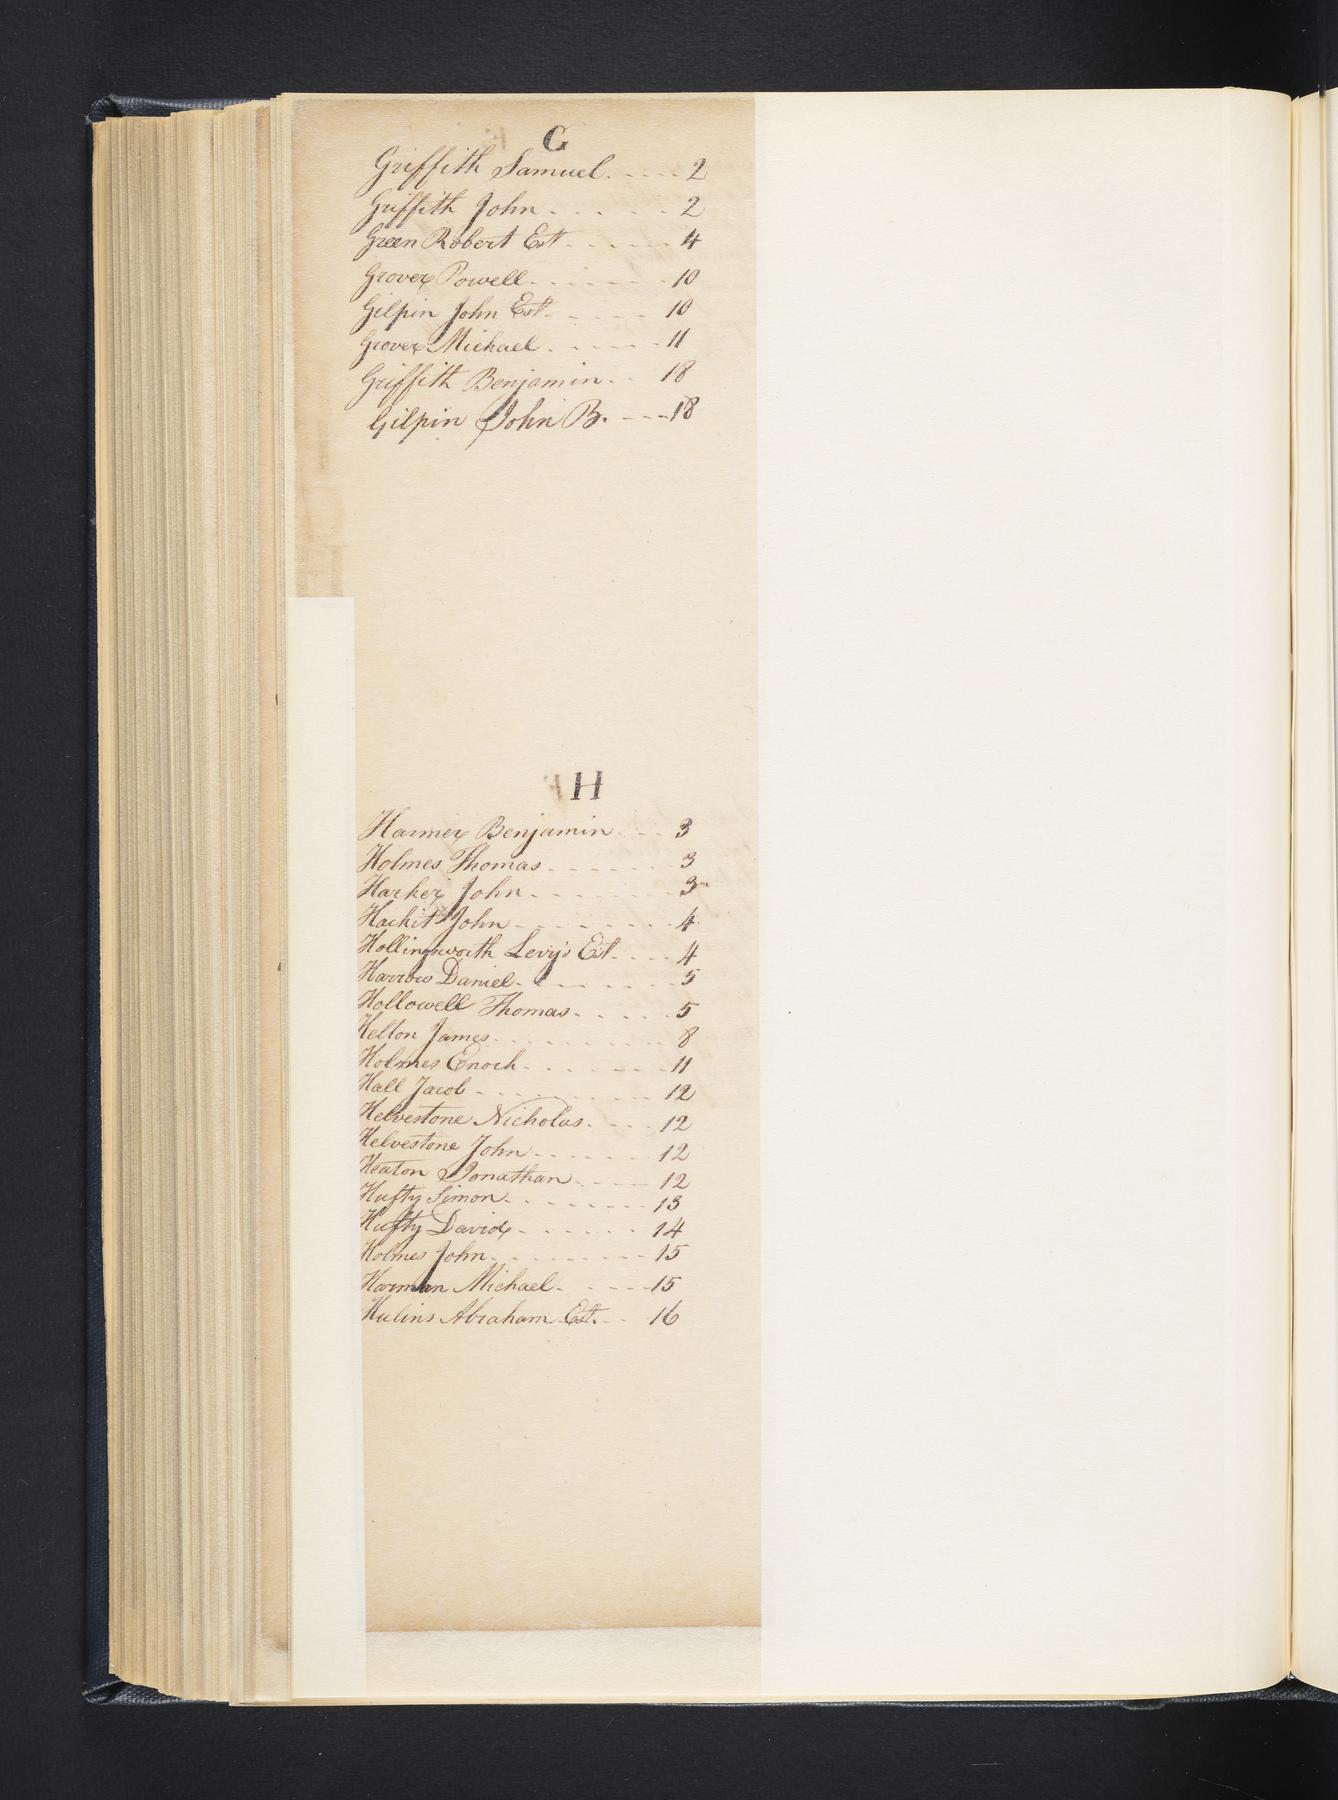 G
Griffith Samuel. - - - - 2
Griffith John - - - - - 2
Green Robert Est - - - - - 4
Grover Powell - - - - - - 10
Gilpin John Est - - - - - 10
Grover Michael - - - - - 11
Griffith Benjamin - - 18
Gilpin John B. - - - 18
H
Harmer Benjamin - - - 3
Holmes Thomas - - - - - - 3
Harker John - - - - - - 3
Hackit John - - - - - - - 4
Hollingsworth Levy's Est - - - - 4
Harrow Daniel - - - - - - - 5
Hollowell Thomas - - - - - 5
Helton James - - - - - - - - 8
Holmes Enoch - - - - - - - 11
Hall Jacob - - - - - - - - 12
Helvestone Nicholas - - - - 12
Helvestone John - - - - - - 12
Heaton Jonathan - - - - 12
Hufty Simon - - - - - - - 13
Hufty David - - - - - - 14
Holmes John - - - - - - - - 15
Harman Michael - - - - - 15
Hulins Abraham Est. - - 16